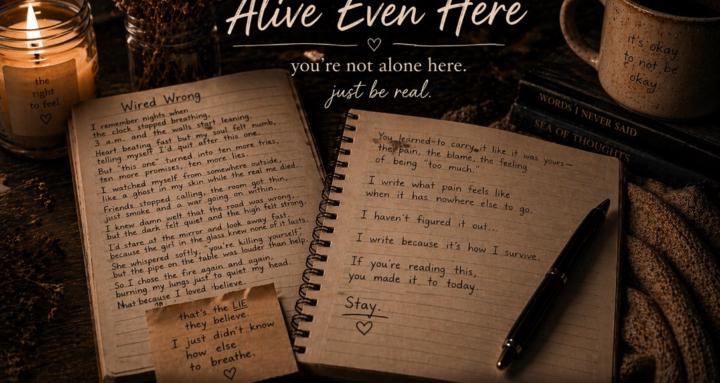 Alive Even Here
you're not alone here.
just be real.
the
right
to feel
it's okay
to not be
okay
WORDS I NEVER SAID
SEA OF THOUGHTS
Wired Wrong
I remember nights when
the clock stopped breathing,
3 a.m. and the walls start leaning.
Heart beating fast but my soul felt numb,
telling myself I'd quit after this one.
But "this one" turned into ten more tries,
ten more promises, ten more lies.
I watched myself from somewhere outside,
like a ghost in my skin while the real me died.
Friends stopped calling, the room got thin,
just smoke and a war going within.
I knew damn well that the road was wrong,
but the dark felt quiet and the high felt strong.
I'd stare at the mirror and look away fast,
because the girl in the glass knew none of it lasts.
She whispered softly, "you're killing yourself,"
but the pipe on the table was louder than help.
So I chose the fire again and again,
burning my lungs just to quiet my head.
Not because I loved
that's the LIE
they believe.
I just didn't know
how else
to breathe.
You learned to carry it like it was yours—
the pain, the blame, the feeling
of being "too much."
I write what pain feels like
when it has nowhere else to go.
I haven't figured it out...
I write because it's how I survive.
If you're reading this,
you made it to today.
Stay.